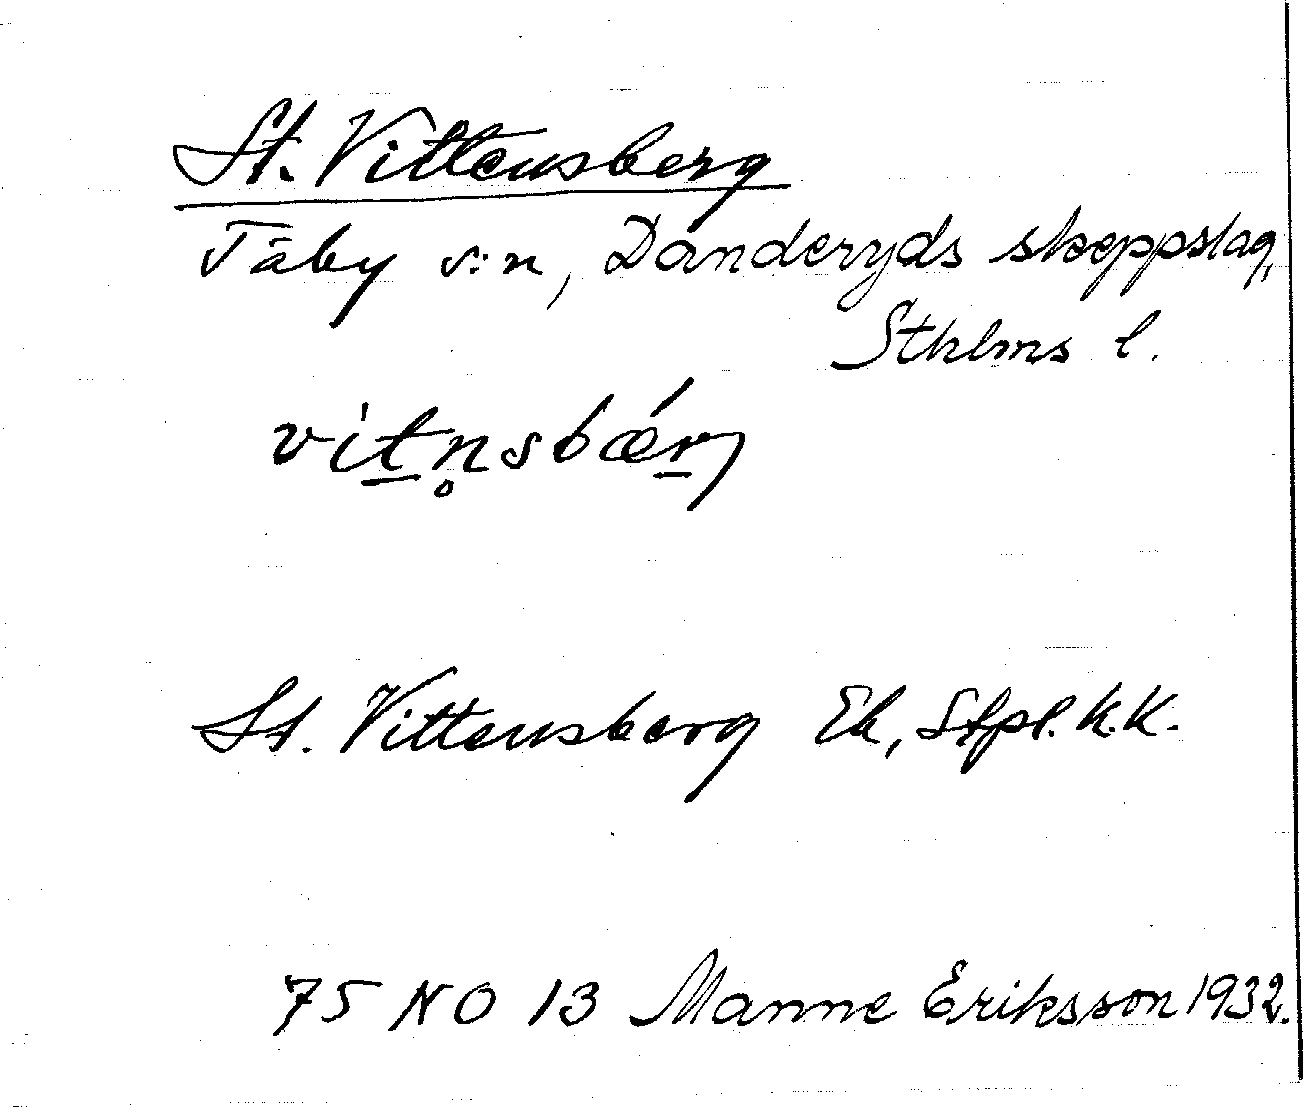 St. Vittensberg
Täby s:n, Danderyds skeppslag,
Sthlms l.
vit̠n̥sbǽr̠j
St. Vittensberg Ek, Stfpl. k.k.
75 NO 13 Manne Eriksson 1932.